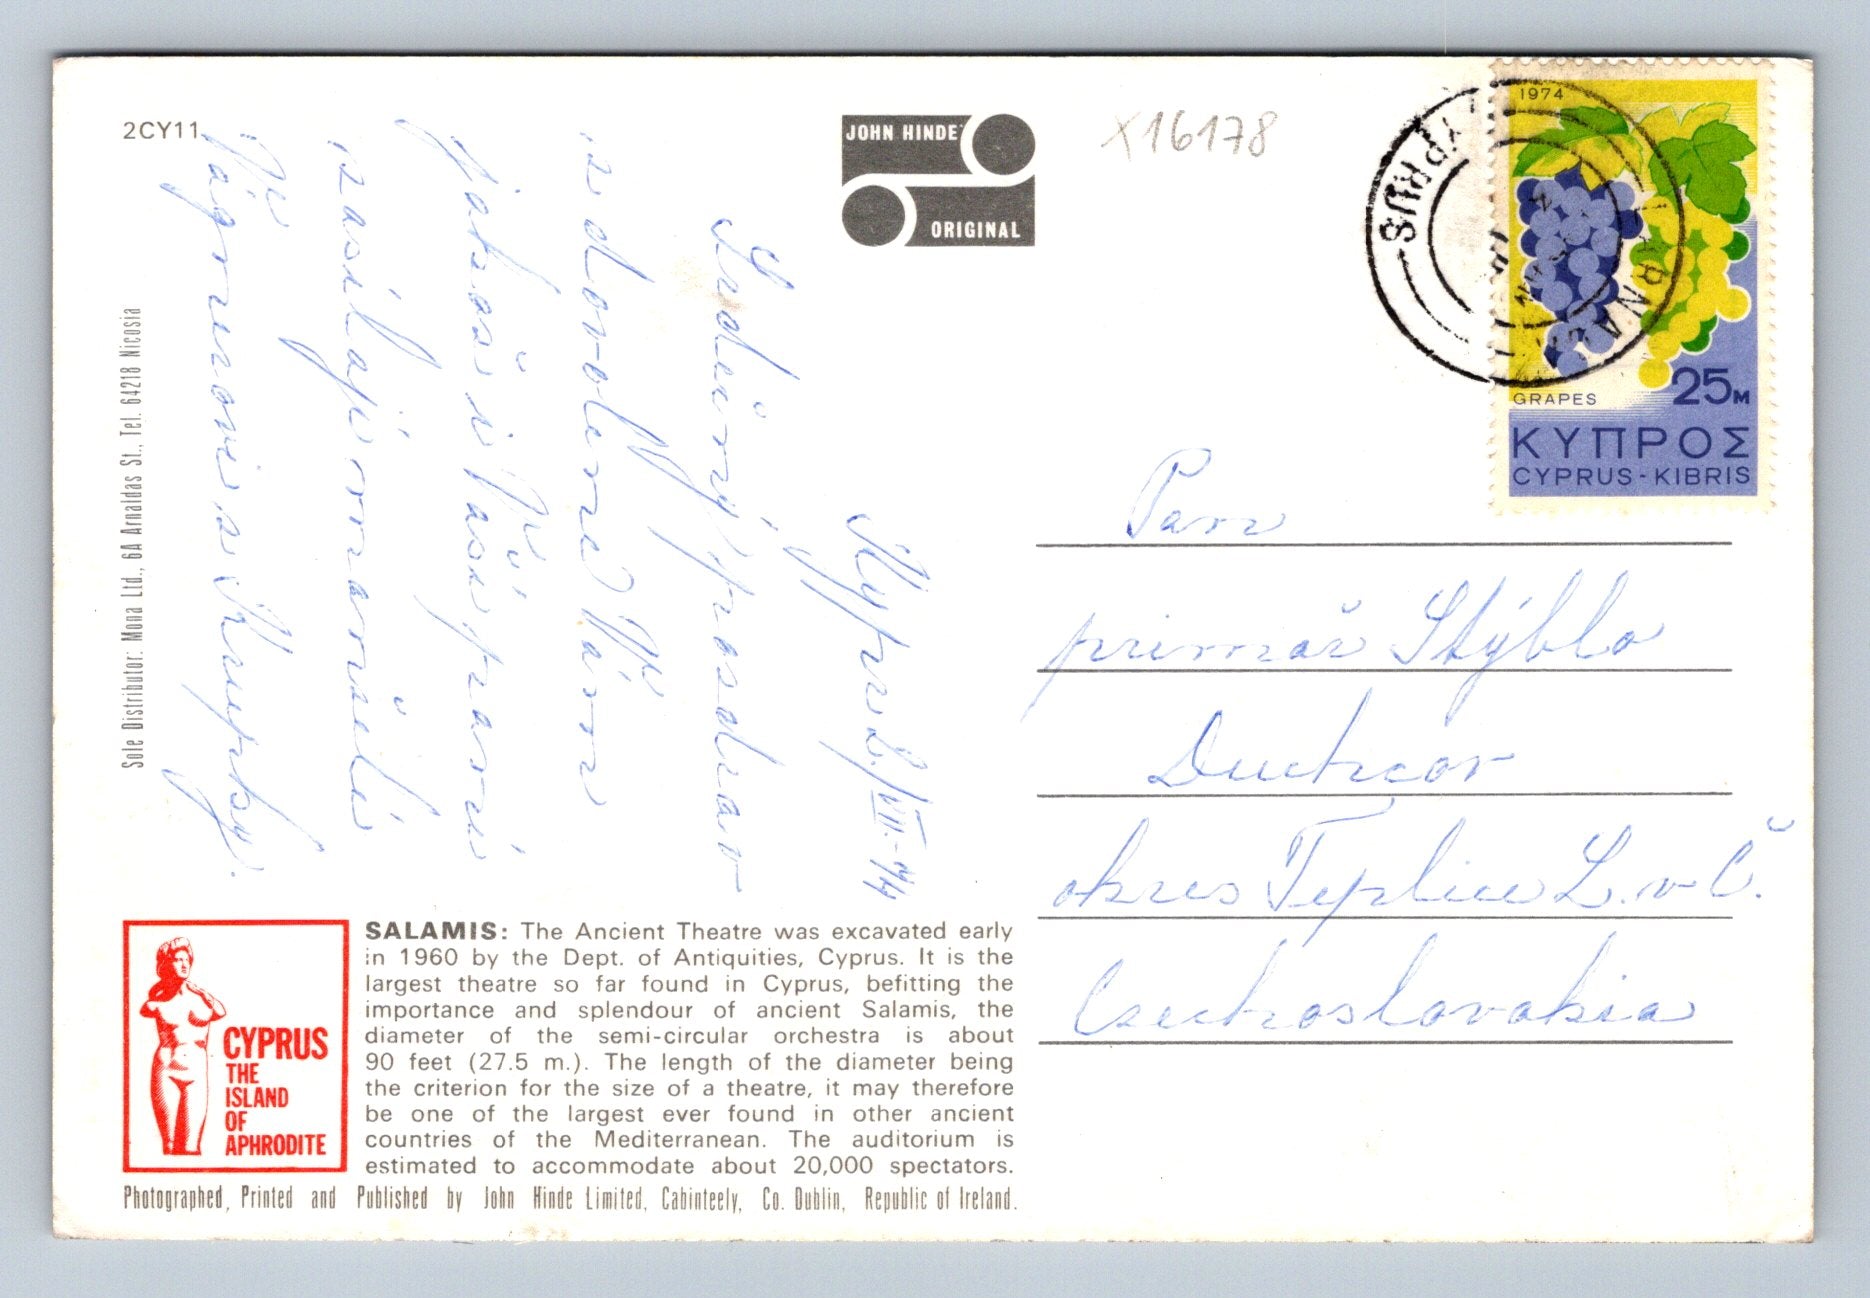 2CY11
JOHN HINDE
ORIGINAL
X16178
CYPRUS
LARNACA
1974
GRAPES
25M
ΚΥΠΡΟΣ
CYPRUS-KIBRIS
Sole Distributor: Mona Ltd., 6A Arnaldas St., Tel. 64218 Nicosia
Kypr 2./VII.-74
Srdečný pozdrav
z dovolené Vám
jakož i Vaší paní
zasílají manželé
Vágnerovi s
Pan
primář Stýblo
Duchcov
okres Teplice L. v Č.
Czechoslovakia
SALAMIS: The Ancient Theatre was excavated early
in 1960 by the Dept. of Antiquities, Cyprus. It is the
largest theatre so far found in Cyprus, befitting the
importance and splendour of ancient Salamis, the
diameter of the semi-circular orchestra is about
90 feet (27.5 m.). The length of the diameter being
the criterion for the size of a theatre, it may therefore
be one of the largest ever found in other ancient
countries of the Mediterranean. The auditorium is
estimated to accommodate about 20,000 spectators.
CYPRUS
THE
ISLAND
OF
APHRODITE
Photographed, Printed and Published by John Hinde Limited, Cabinteely, Co. Dublin, Republic of Ireland.